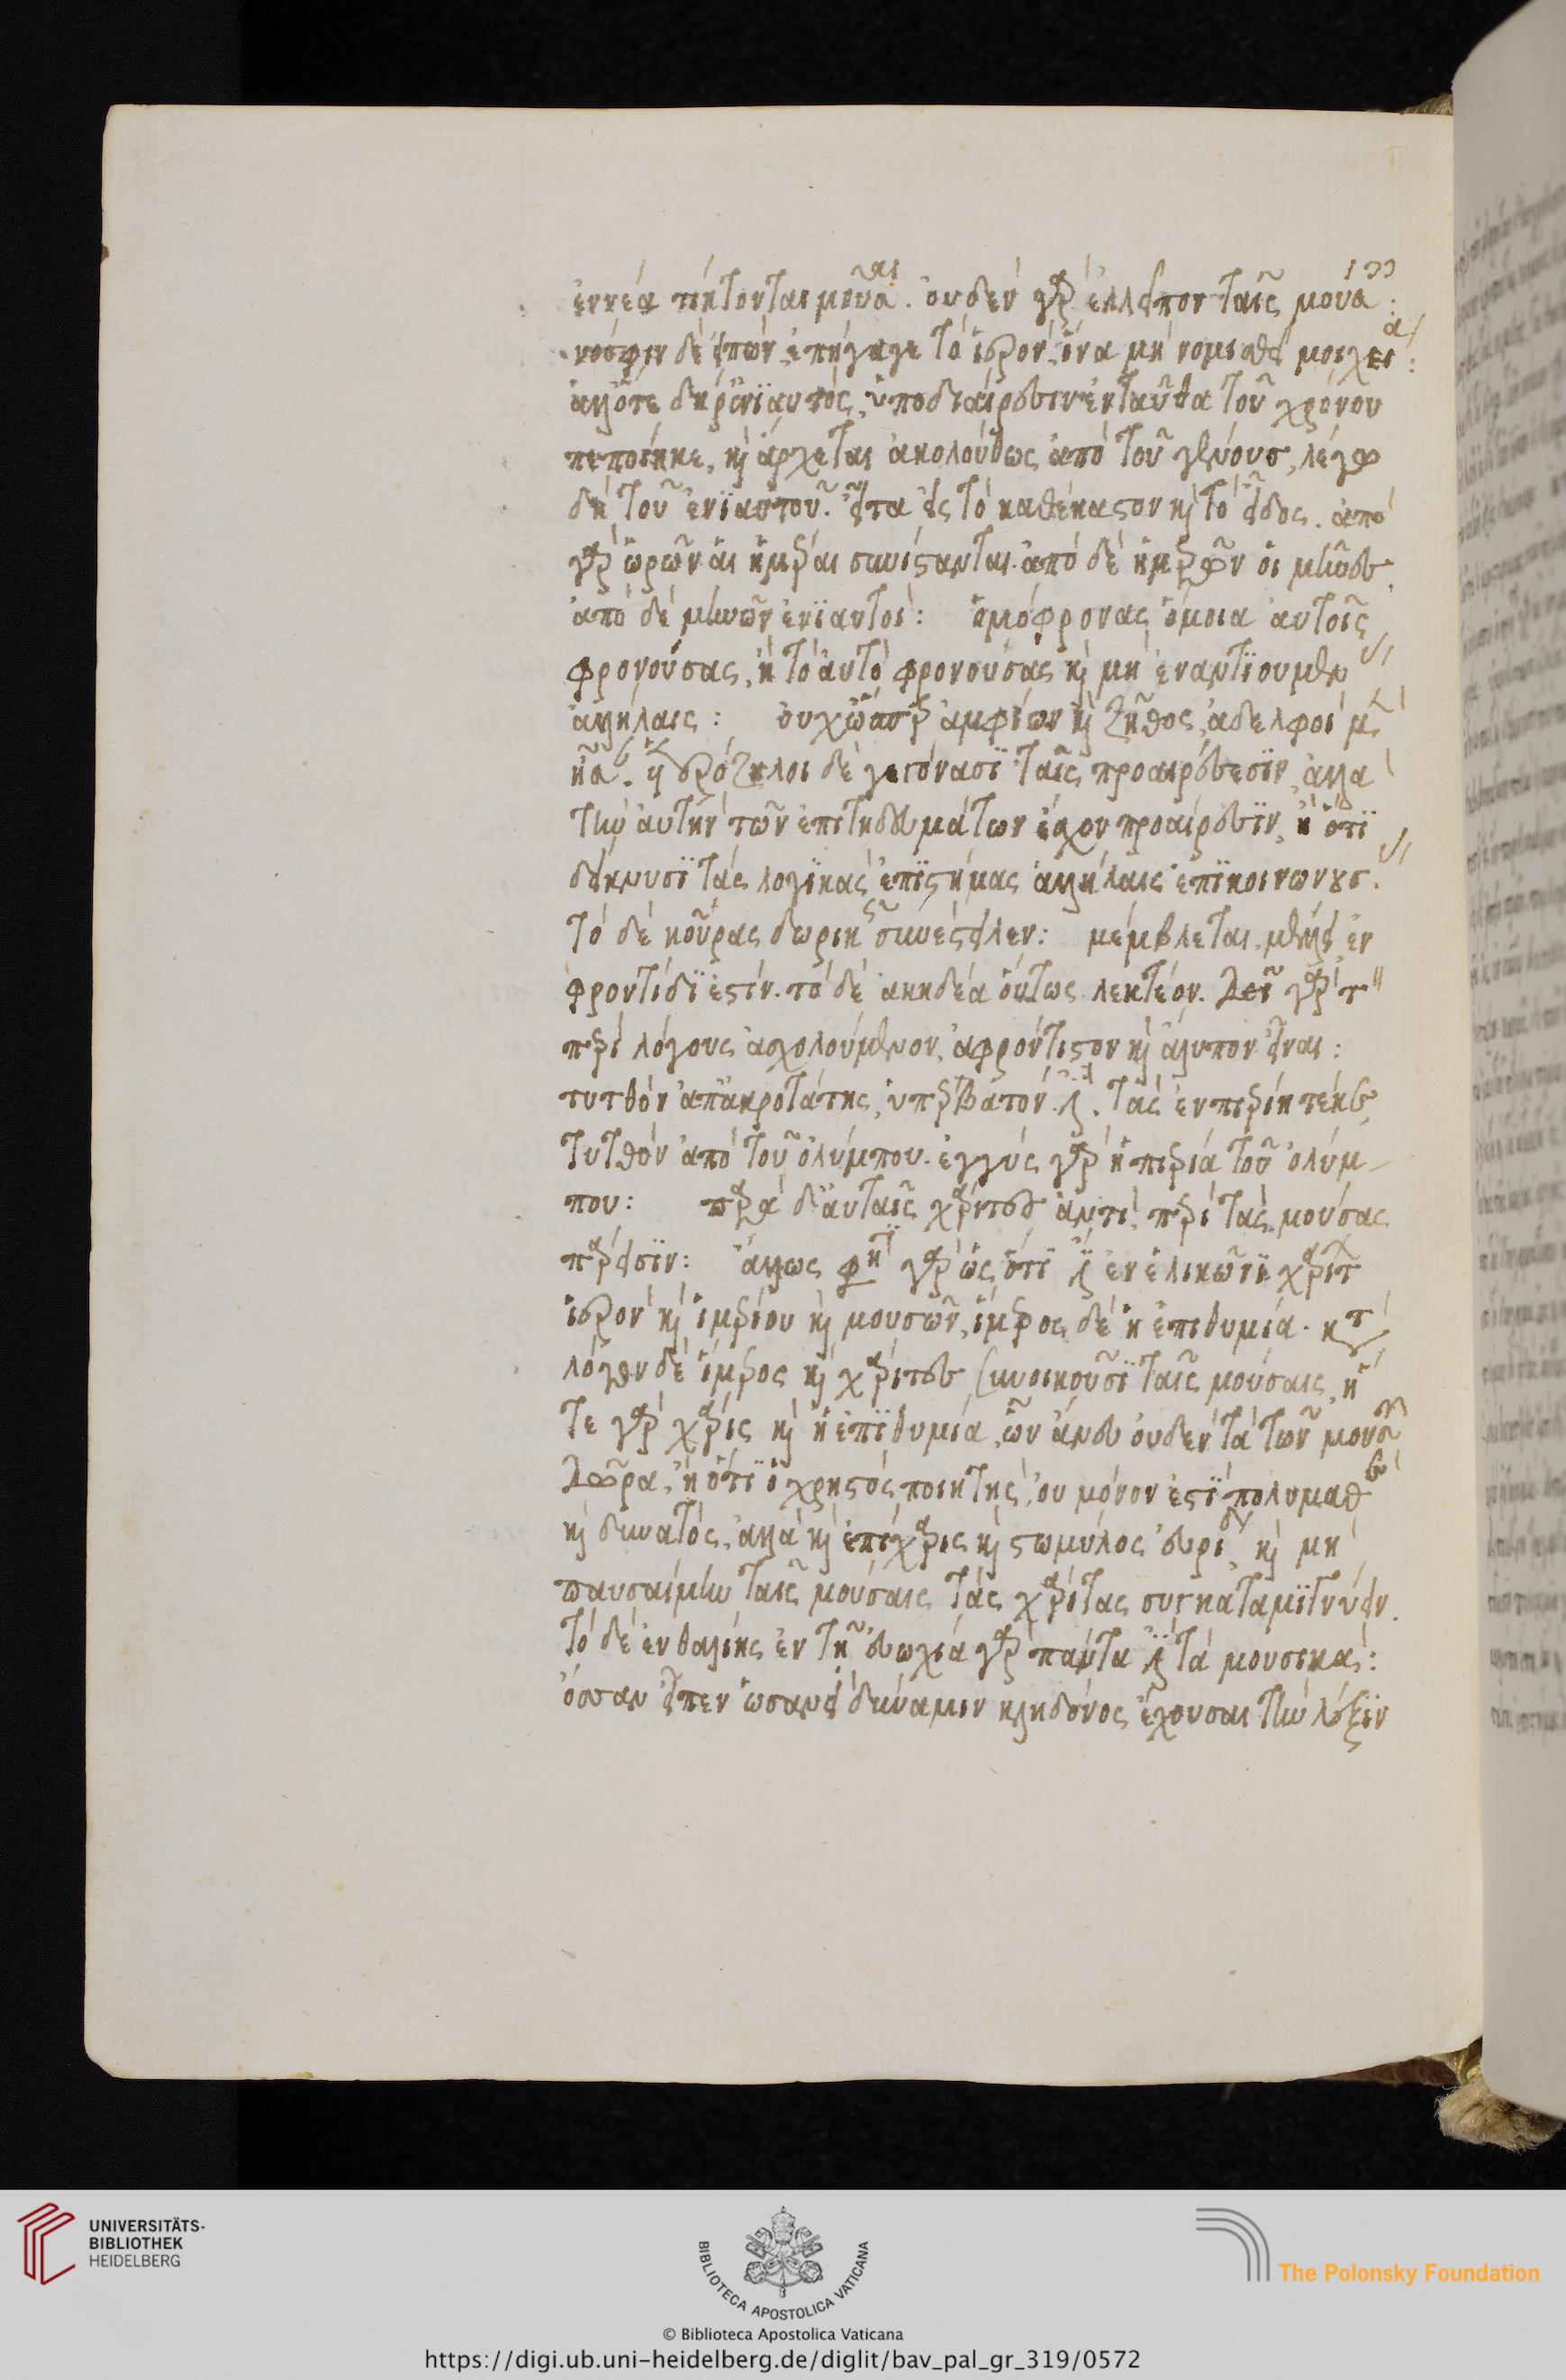 ἐννέα τίκτονται μοῦσαι. οὐδὲν γὰρ ἐλλείπον ταῖς μούσαις:
νόσφιν δὲ εἰπὼν, ἐπήγαγε τὸ ἱερὸν, ἵνα μὴ νομισθῇ μοιχεία:
ἀλλ' ὅτε δή ῥ' ἐνϊαυτὸς, ὑποδιαίρεσιν ἐνταῦθα τοῦ χρόνου
πεποίηκε, καὶ ἄρχεται ἀκολούθως ἀπὸ τοῦ γένους, λέγω
δὴ τοῦ ἐνϊαυτοῦ. εἶτα εἰς τὸ καθέκαστον καὶ τὸ εἶδος. ἀπὸ
γὰρ ὡρῶν αἱ ἡμέραι συνίστανται. ἀπὸ δὲ ἡμερῶν οἱ μῆνες,
ἀπὸ δὲ μηνῶν ἐνϊαυτοί: ὁμόφρονας, ὅμοια αὐτοῖς
φρονούσας, ἢ τὸ αὐτὸ φρονούσας καὶ μὴ ἐναντϊουμένας
ἀλλήλαις: οὐχ ὥσπερ ἀμφίων καὶ ζῆθος, ἀδελφοὶ μὲν
ἦσαν. ἑτερόζηλοι δὲ γεγόνασϊ ταῖς προαιρέσεσϊν, ἀλλὰ
τὴν αὐτὴν τῶν ἐπιτηδευμάτων ἔχον προαίρεσϊν, ἢ ὅτϊ
δείκνυσϊ τὰς λογϊκὰς ἐπϊστήμας ἀλλήλαις ἐπϊκοινωνούσας.
τὸ δὲ κοῦρας δωρικῶς συνέστειλεν: μέμβλεται, μέλλει ἐν
φροντίδϊ ἐστίν. τὸ δὲ ἀκηδέα οὕτως λεκτέον. δεῖ γὰρ τὸν
περὶ λόγους ἀσχολούμενον, ἀφρόντιστον καὶ ἄλυπον εἶναι:
τυτθὸν ἀπ' ἀκροτάτης, ὑπερβατόν ἐστι. τὰς ἐν πιερίη τέκε,
τυτθὸν ἀπὸ τοῦ ὀλύμπου. ἐγγὺς γὰρ ἡ πιερία τοῦ ὀλύμ-
που: παρὰ δ' αὐταῖς χάριτες ἀντὶ, περὶ τὰς μούσας
πάρεισϊν: ἄλλως φησὶ γὰρ ὡς ὅτϊ ἐστὶ ἐν ἑλικῶνϊ χαρίτων
ἱερὸν καὶ ἱμέρου καὶ μουσῶν, ἵμερος δὲ ἡ ἐπιθυμία. κατὰ
λόγον δὲ ἵμερος καὶ χάριτες συνοικοῦσϊ ταῖς μούσαις, ἥ
τε γὰρ χάρις καὶ ἡ ἐπϊθυμία, ὧν ἄνευ οὐδὲν τὰ τῶν μουσῶν
δῶρα, ἢ ὅτϊ ὁ χρηστὸς ποιητὴς, οὐ μόνον ἐστϊ πολυμαθὴς
καὶ δυνατὸς, ἀλλὰ καὶ ἐπίχαρις καὶ στωμύλος. εὐριπίδης καὶ μὴ
παυσαίμην ταῖς μούσαις τὰς χάριτας συγκαταμϊγνύειν.
τὸ δὲ ἐν θαλίης ἐν τῇ εὐωχία γὰρ πάντα ἐστὶ τὰ μουσικά:
ὄσσαν εἶπεν ὡσανεὶ δύναμιν κληδόνος ἔχουσαι τὴν λέξϊν
UNIVERSITÄTS-
BIBLIOTHEK
HEIDELBERG
BIBLIOTECA APOSTOLICA VATICANA
The Polonsky Foundation
© Biblioteca Apostolica Vaticana
https://digi.ub.uni-heidelberg.de/diglit/bav_pal_gr_319/0572